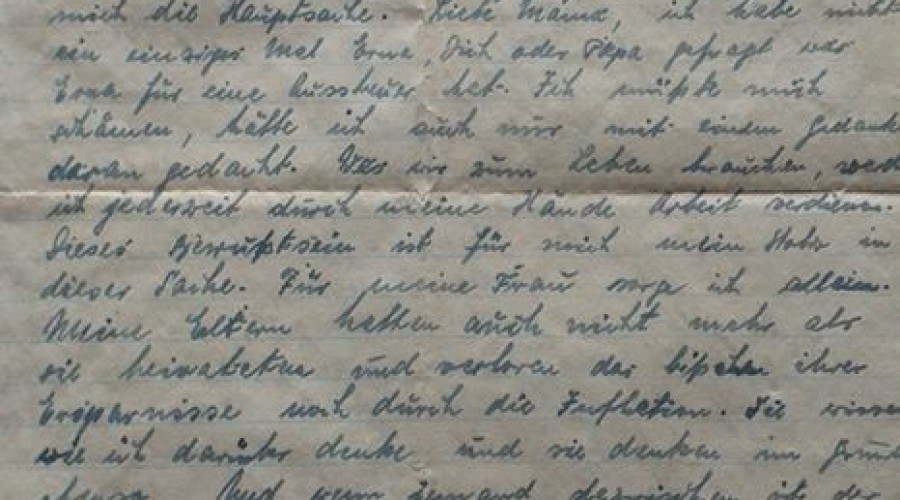 mich die Hauptsache. Liebe Mama, ich habe nicht
ein einziges Mal Erna, Dich oder Papa gefragt was
Erna für eine Aussteuer hat. Ich müßte mich
schämen, hätte ich auch nur mit einem Gedanke
daran gedacht. Was wir zum Leben brauchen, werd
ich jederzeit durch meine Hände Arbeit verdienen.
Dieses Bewußtsein ist für mich mein Stolz in
dieser Sache. Für meine Frau sorge ich allein.
Meine Eltern hatten auch nicht mehr als
sie heirateten und verloren das bißchen ihrer
Ersparnisse noch durch die Inflation. Sie wissen
wie ich darüber denke und sie denken im Grund
ebenso. Und wenn jemand dazwischen ist der